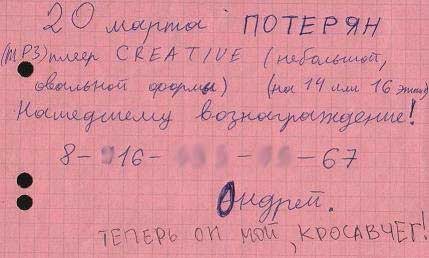 20 марта ПОТЕРЯН
(MP3) плеер CREATIVE (небольшой,
овальной формы) (на 14 или 16 этаже)
Нашедшему вознаграждение!
8- 916- - -67
Андрей.
ТЕПЕРЬ ОН МОЙ, КРОСАВЧЕГ!